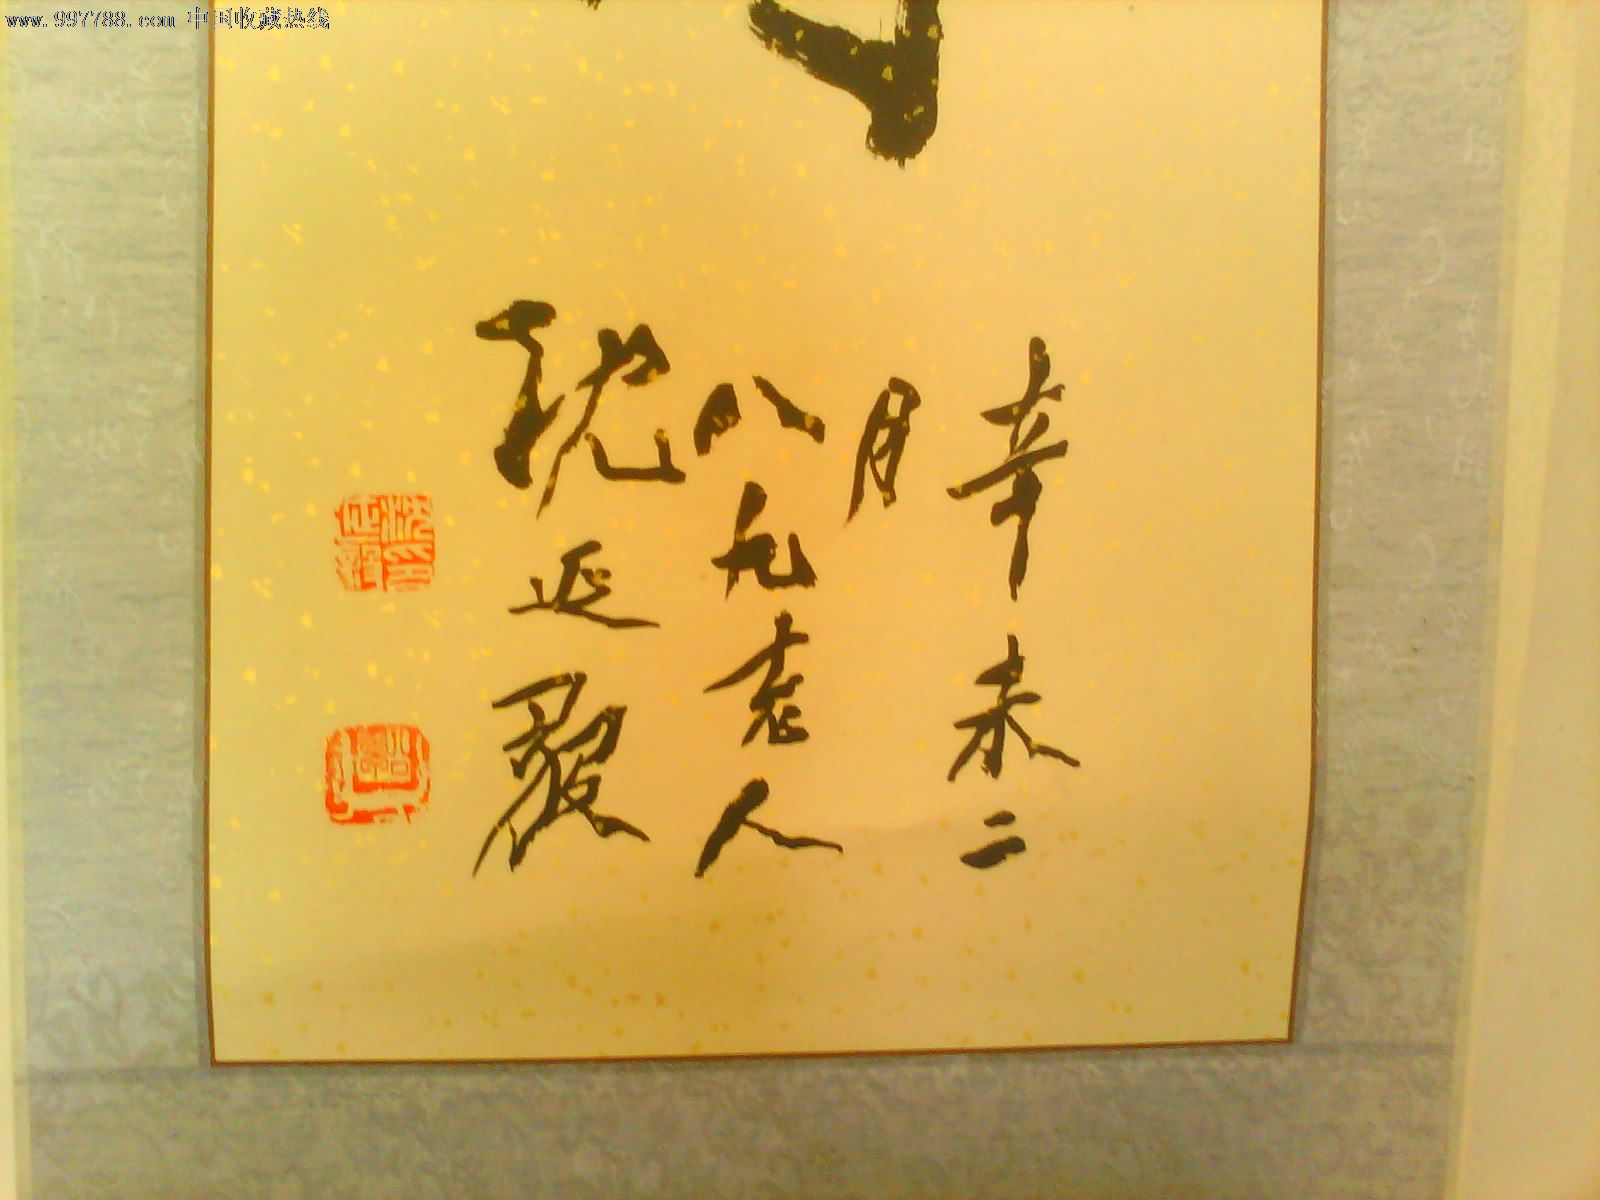 www.997788.com 中国收藏热线
辛未二
月
八九老人
沈延毅
沈延毅印